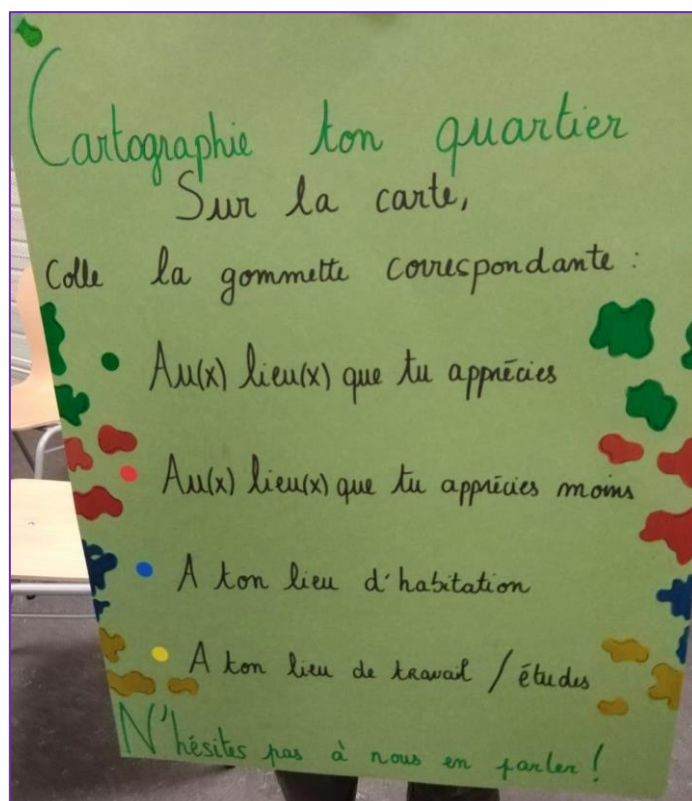 Cartographie ton quartier
Sur la carte,
Colle la gommette correspondante :
Au(x) lieu(x) que tu apprécies
Au(x) lieu(x) que tu apprécies moins
A ton lieu d'habitation
A ton lieu de travail / études
N'hésites pas à nous en parler !